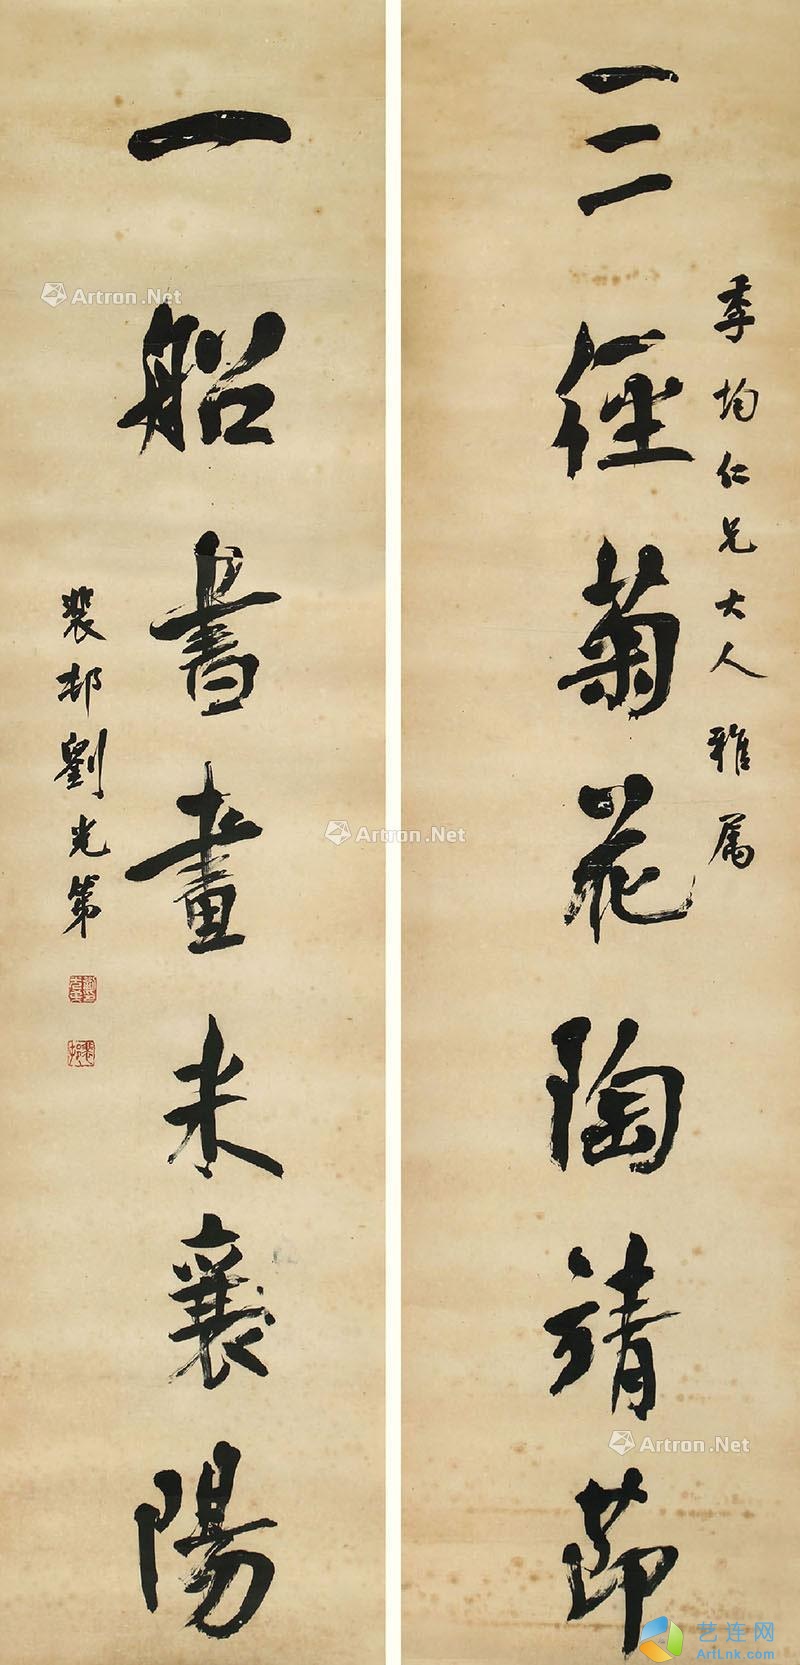 三徑菊花陶靖節
季均仁兄大人雅属
一船書畫米襄陽
裴邨劉光第
Artron.Net
Artron.Net
Artron.Net
艺连网
ArtLnk.com